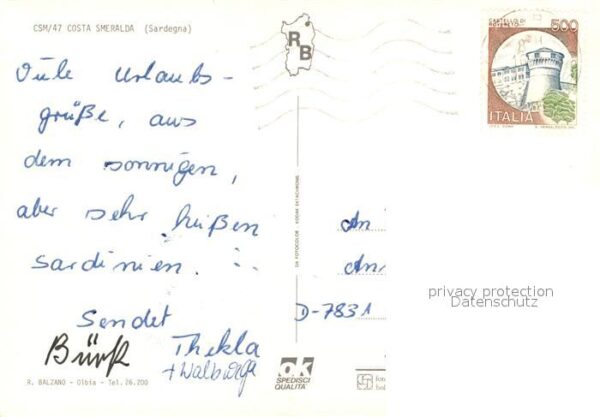 CSM/47 COSTA SMERALDA (Sardegna)
Viele Urlaubs-
grüße, aus
dem sonnigen,
aber sehr heißen
Sardinien.
Sendet
Thekla
+ Walburga
R. BALZANO - Olbia - Tel. 26.200
RB
DA FOTOCOLOR - KODAK EKTACHROME
ok
SPEDISCI
QUALITÀ
CASTELLO DI
ROVERETO
500
ITALIA
An
An
D-7831
privacy protection
Datenschutz